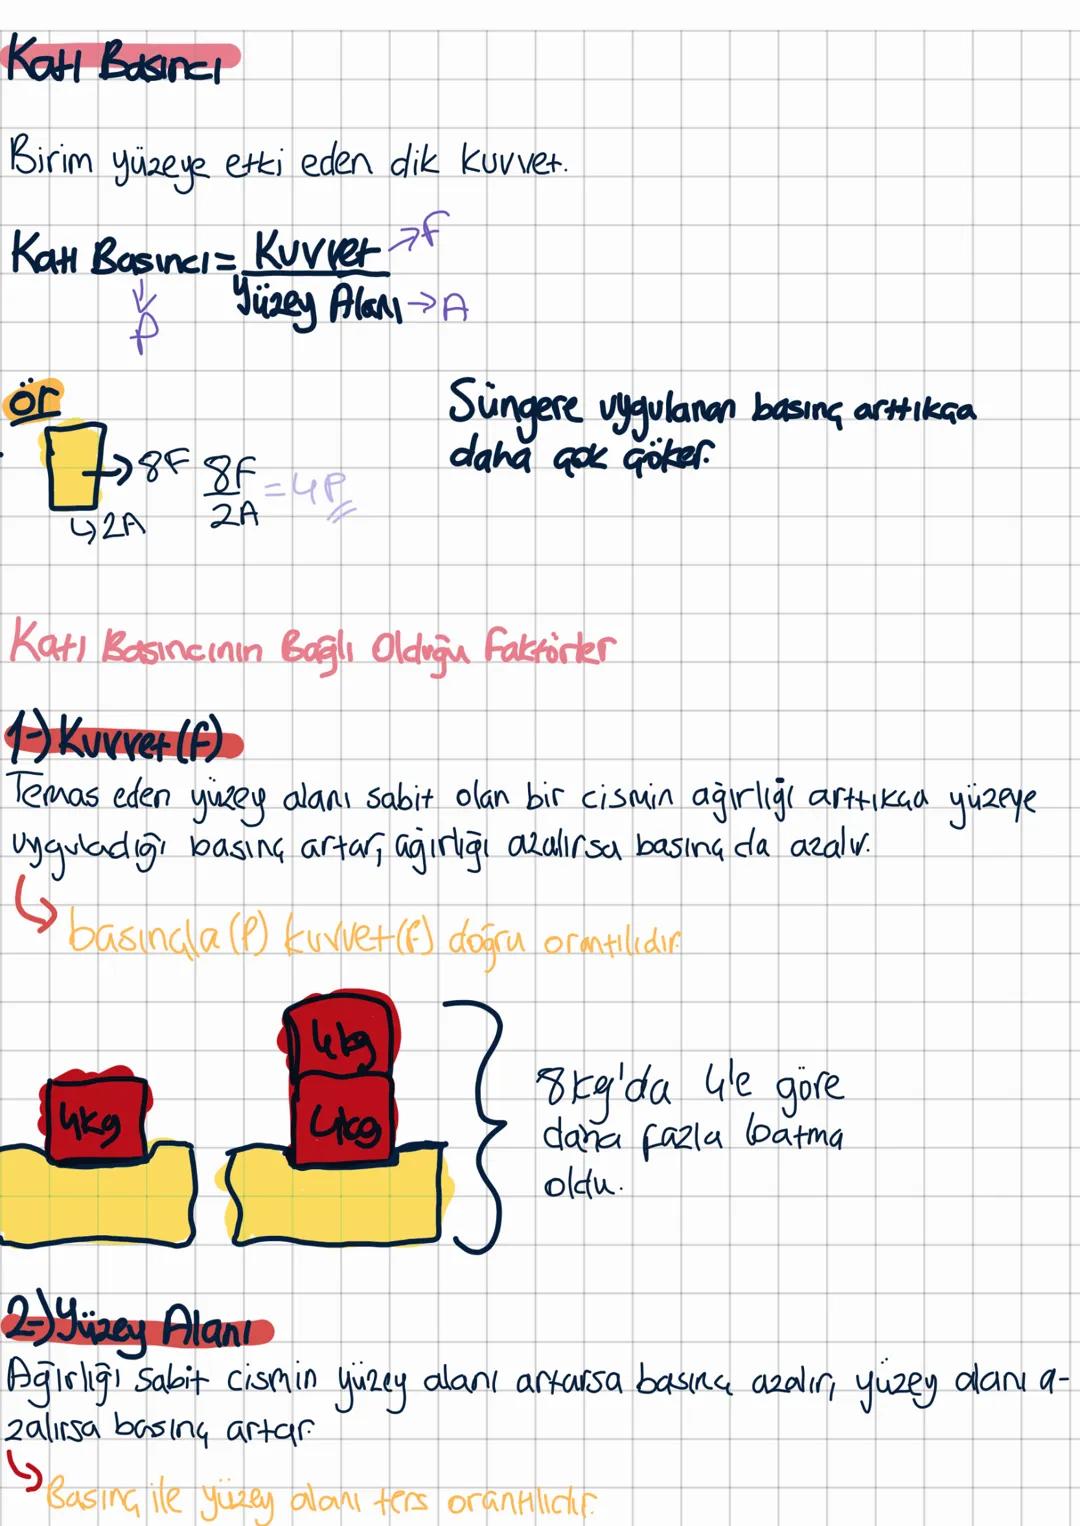 Katı Basıncı
Birim yüzeye etki eden dik kuvvet.
Katı Basıncı = Kuvvet → F
Yüzey Alanı → A
P
ör
→ 8F 8F = 4P
2A 2A
Süngere uygulanan basınç arttıkça
daha çok çöker.
Katı Basıncının Bağlı Olduğu Faktörler
1-) Kuvvet (F)
Temas eden yüzey alanı sabit olan bir cismin ağırlığı arttıkça yüzeye
uyguladığı basınç artar, ağırlığı azalırsa basınç da azalır.
basınçla (P) kuvvet (F) doğru orantılıdır.
4kg
4kg
4kg
8kg'da 4'e göre
daha fazla batma
oldu.
2-) Yüzey Alanı
Ağırlığı sabit cismin yüzey alanı artarsa basınç azalır, yüzey alanı a-
zalırsa basınç artar.
Basınç ile yüzey alanı ters orantılıdır.